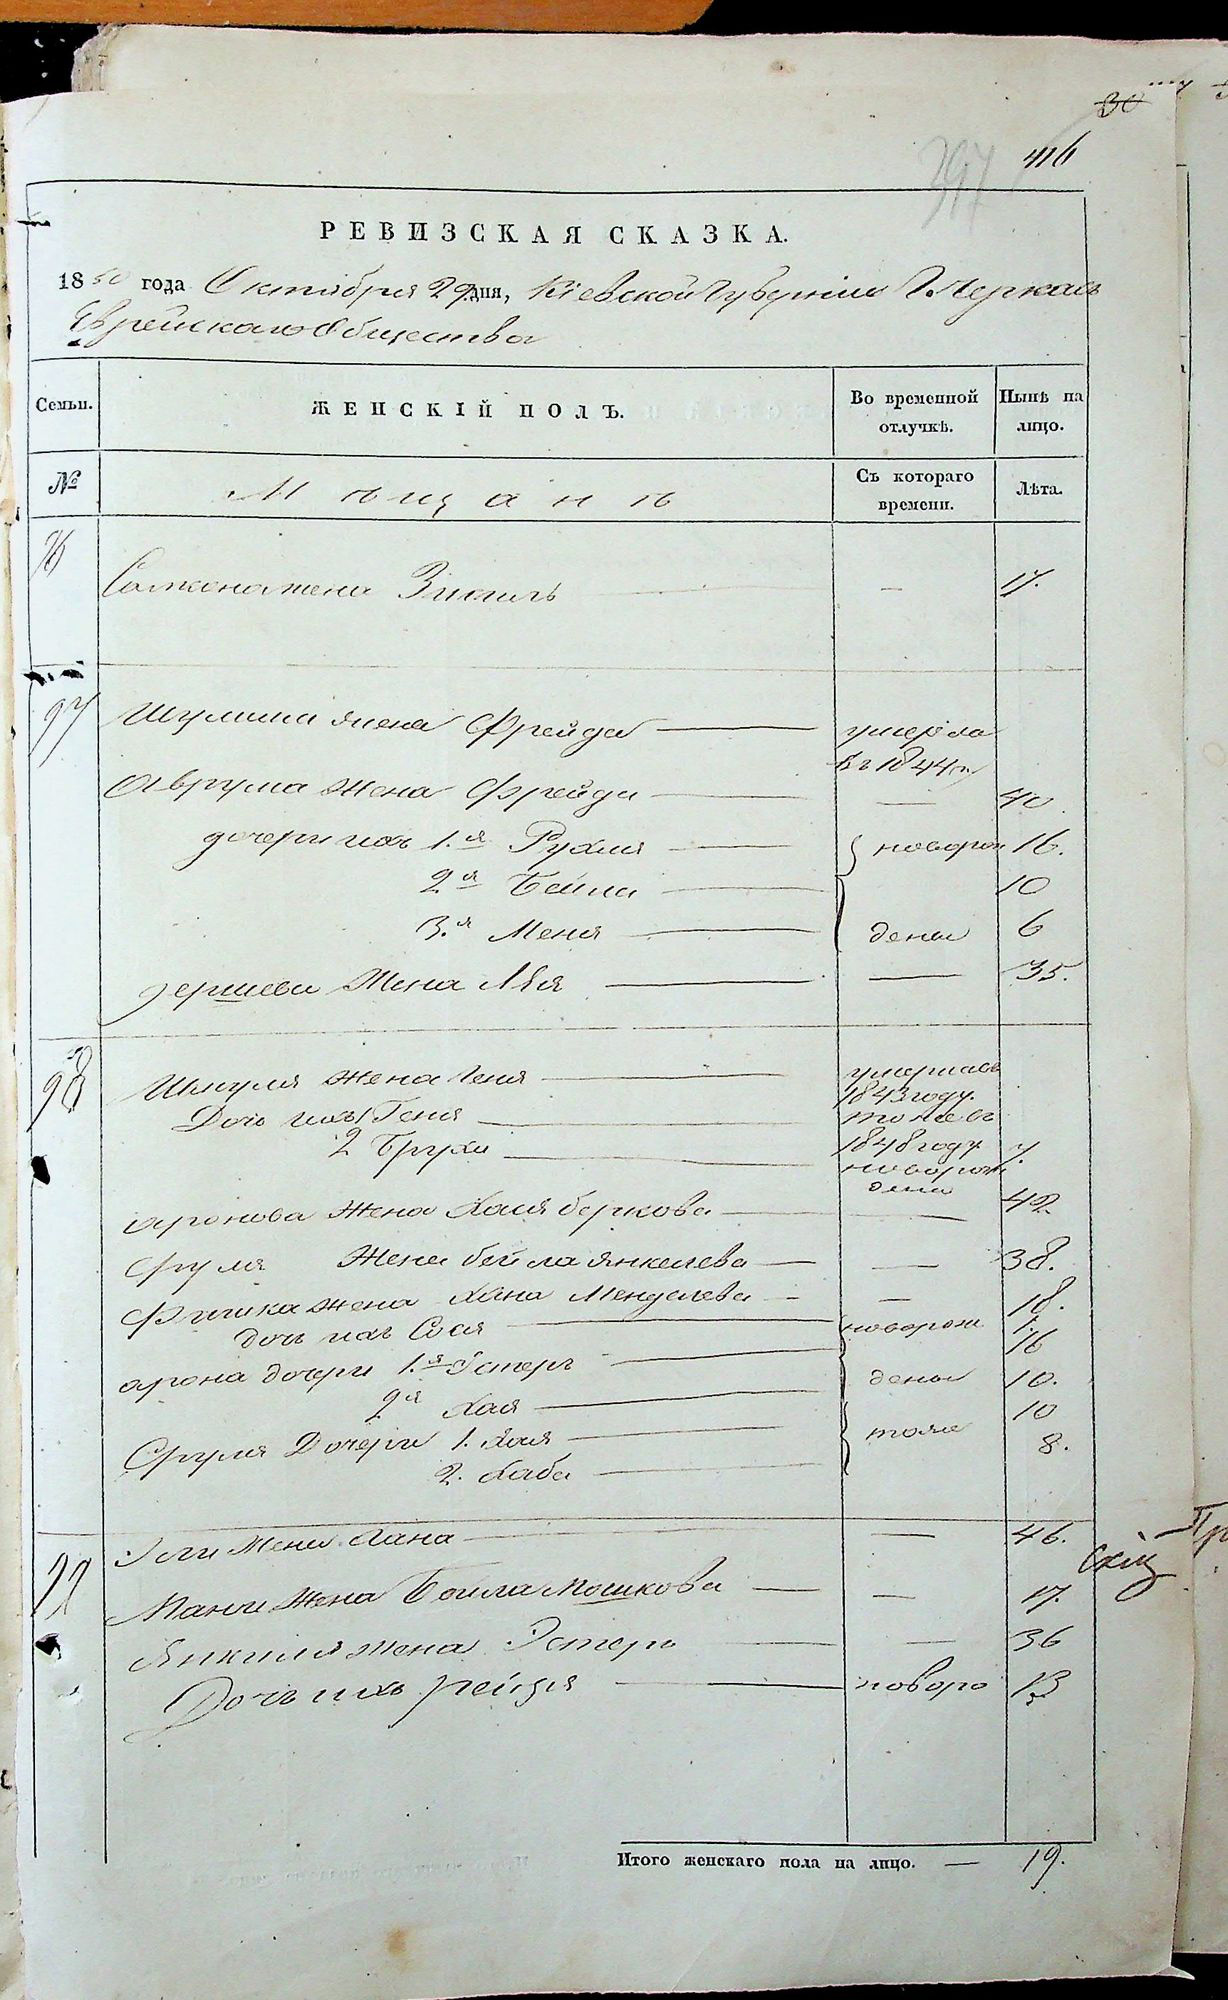 30
397 416
РЕВИЗСКАЯ СКАЗКА.
1850 года Октября 29 дня, Кіевской Губерніи Г. Черкасъ
Еврейскаго Общества
Семьи. ЖЕНСКІЙ ПОЛЪ. Во временной отлучкѣ. Нынѣ на лицо.
№ Мѣщанѣ Съ котораго времени. Лѣта.
жена Зисиль — 17.
97 Шулима жена Фрейда — умерла
въ 1844 г
Аврума жена Фрейда — — 40.
дочери ихъ 1.я Рухля — новорож 16.
2я Бейла — 10
3.я Меня — дены 6
Гершева Жена Лѣя — — 35.
98 Шмуля Жена Геня — умерла въ
1843 году.
Дочь ихъ 1 Геня — тоже въ
1848 году
2 Бруха — новорож 7.
дена
Аронова Жена Хая Беркова — — 42
Сруля Жена Бейла Янкелева — — 38.
Фишка жена Хана Менделева — — 18.
дочь ихъ Сося — новорож 1.
Арона дочери 1.я Эстерь — 16
2я Хая — дены 10.
Сруля Дочери 1. Хая — тоже 10
2. Хаба — 8.
99 Жена Хана — — 46.
Жена Бейла Мошкова — — 17.
Янкиля жена Эстерь — — 36
Дочь ихъ Рейзя — новоро 13
Итого женскаго пола на лицо. — 19.